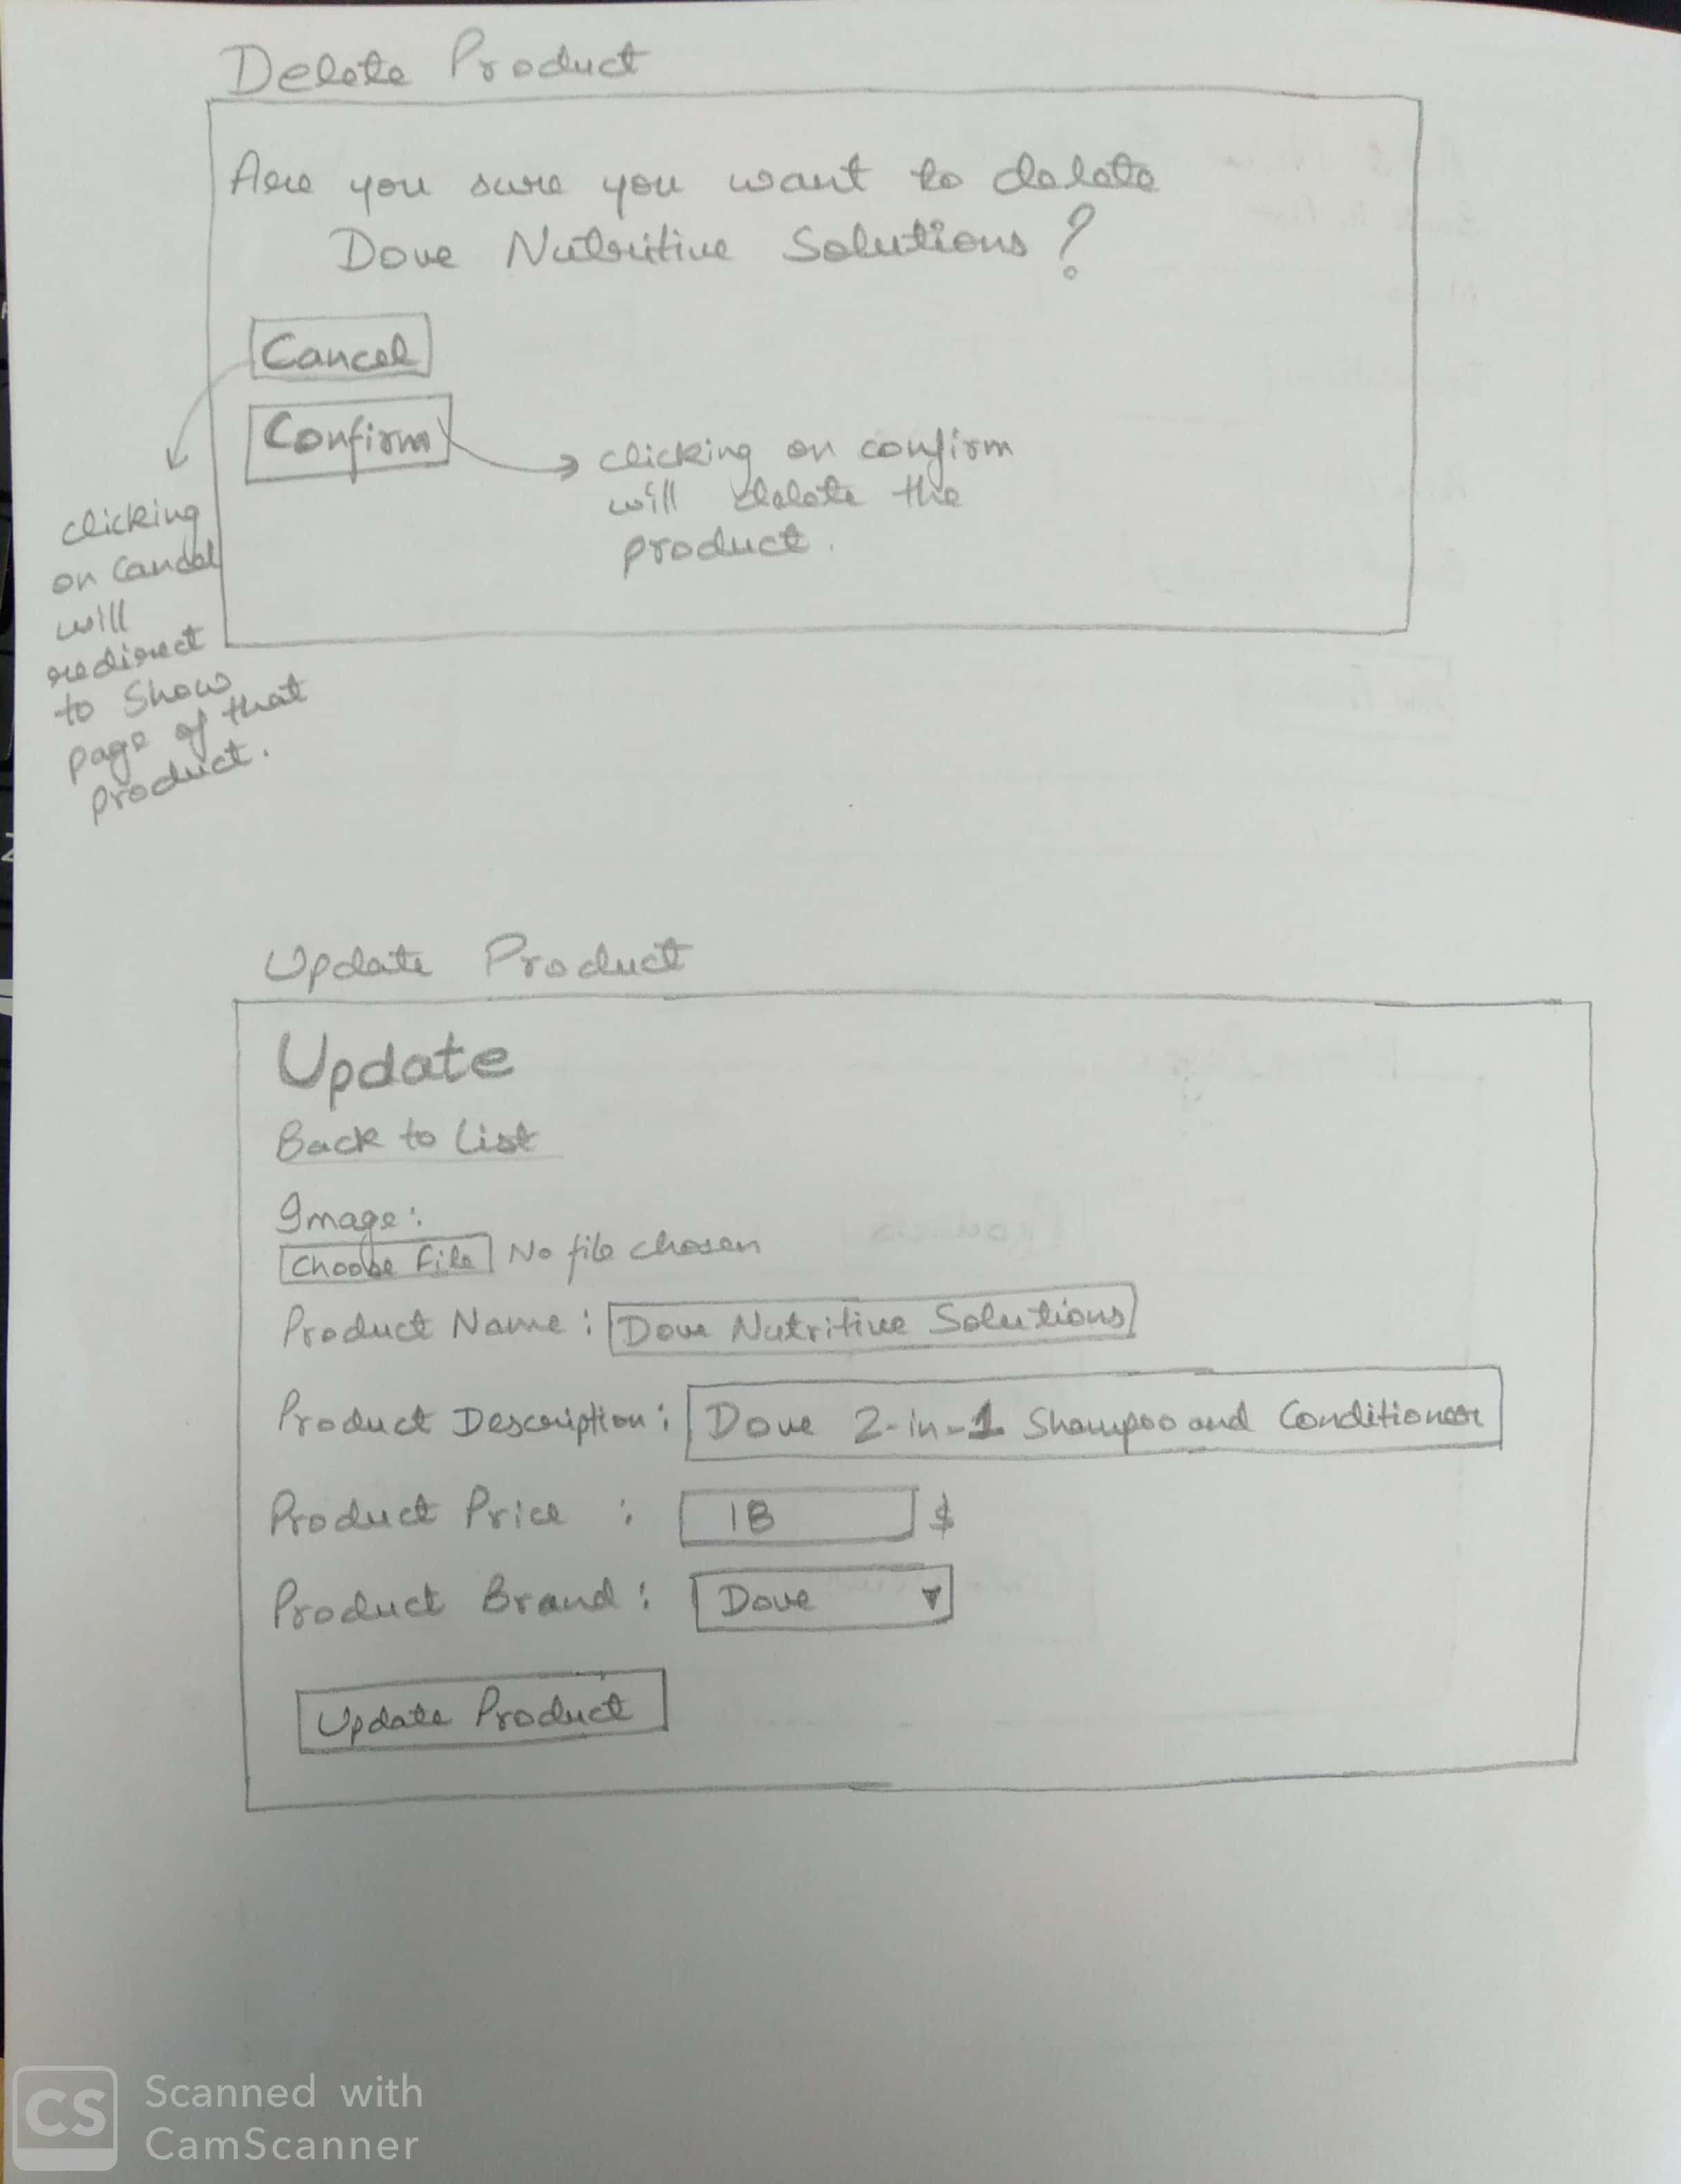 Delete Product
Are you sure you want to delete
Dove Nutritive Solutions ?
Cancel
Confirm
clicking on confirm
will delete the
product.
clicking
on Cancel
will
redirect
to Show
page of that
product.
Update Product
Update
Back to List
Image:
Choose File No file chosen
Product Name : Dove Nutritive Solutions
Product Description : Dove 2-in-1 Shampoo and Conditioner
Product Price : 18 $
Product Brand : Dove
Update Product
CS
Scanned with
CamScanner